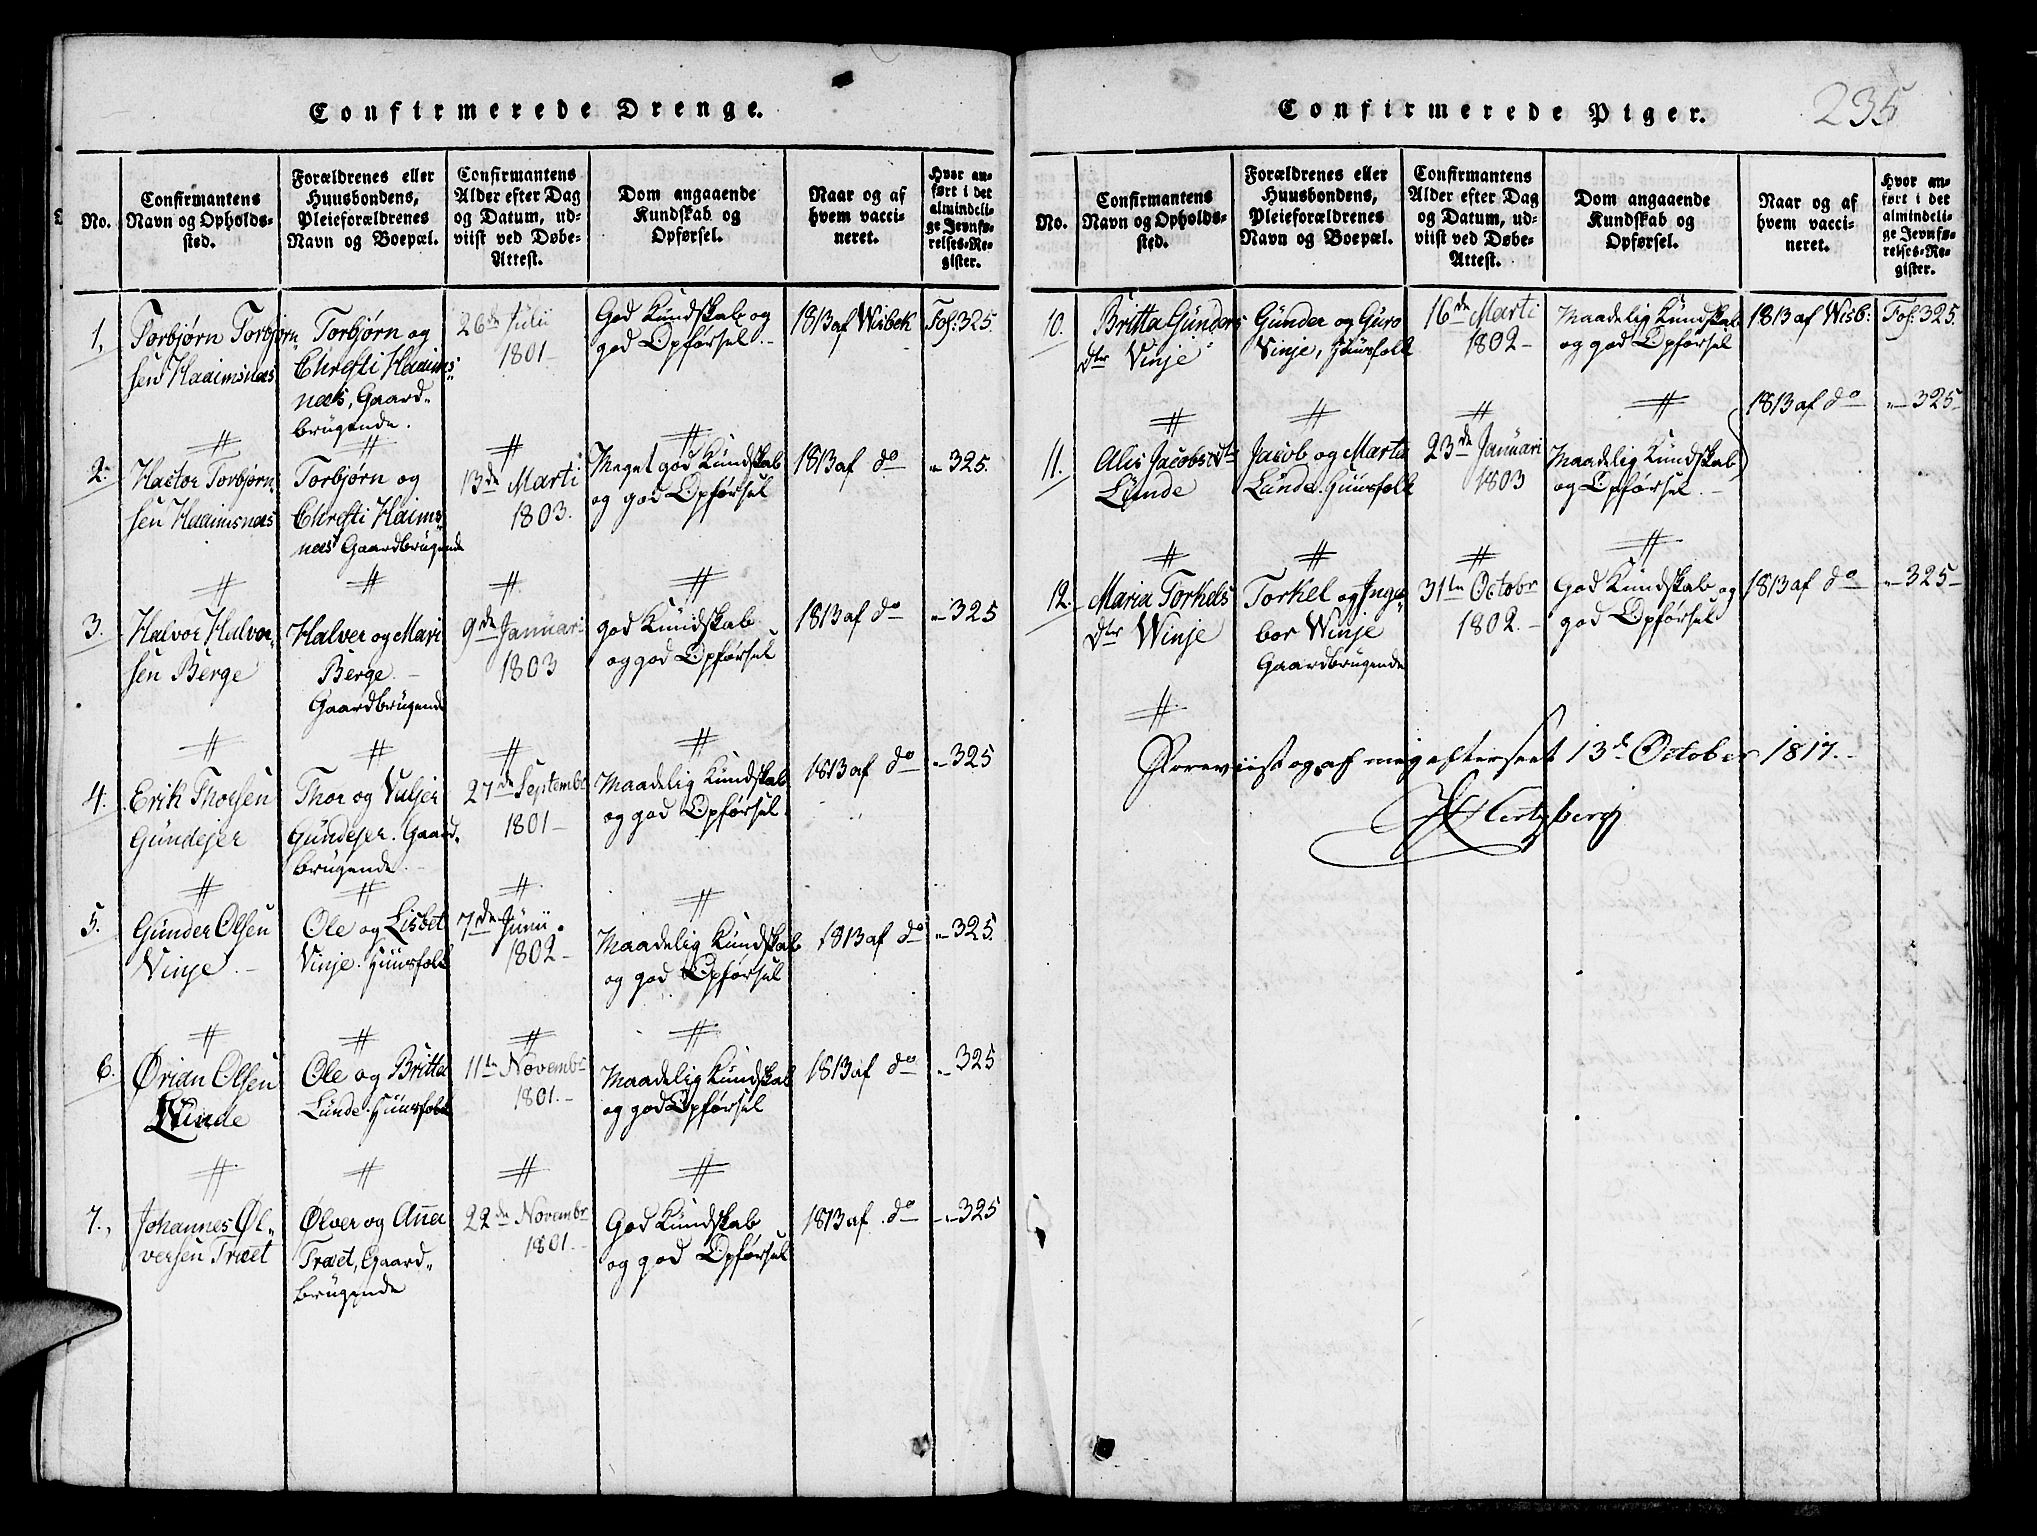 Confirmerede Drenge.
No.
Confirmantens
Navn og Opholds-
sted.
Forældrenes eller
Huusbondens,
Pleieforældrenes
Navn og Boepæl.
Confirmantens
Alder efter Dag
og Datum, ud-
viist ved Døbe-
Attest.
Dom angaaende
Kundskab og
Opførsel.
Naar og af
hvem vacci-
neret.
Hvor an-
ført i det
almindeli-
ge Jevnfø-
relses-Re-
gister.
1.
Torbjørn Torbjørn
sen Haaimsnæs
Torbjørn og
Christi Haaims
næs, Gaard-
brugende.
26de Julii
1801-
God Kundskab og
god Opførsel.
1813 af Wisbek
Fol: 325.
2.
Hactor Torbjørn
sen Haaimsnæs
Torbjørn og
Christi Haims
næs Gaardbrugende
13de Marti
1803.
Meget god Kundskab
og god Opførsel
1813 af do
" 325.
3.
Halvor Halvor
sen Berge
Halver og Mari
Berge.
Gaardbrugende
9de Januari
1803
god Kundskab
og god Opførsel
1813 af do
" 325
4.
Erik Thorsen
Gundejer
Thor og Vuljer
Gundejer. Gaard-
brugende.
27de Septembr
1801-
Maadelig Kundskab
og god Opførsel.
1813 af do
" 325
5.
Gunder Olsen
Vinje.
Ole og Lisbet
Vinje. Huusfolk
7de Junii.
1802-
Maadelig Kundskab
og god Opførsel
1813 af do
" 325.
6.
Ørian Olsen
Lunde
Ole og Britta
Lunde. Huusfolk
11te Novembr
1801.-
Maadelig Kundskab
og god Opførsel
1813 af do
" 325
7.
Johannes Øl-
versen Træet
Ølver og Anna
Træet, Gaard-
brugende
22de Novembr
1801.-
God Kundskab
og god Opførsel
1813 af do
" 325
Confirmerede Piger.
235
No.
Confirmantens
Navn og Opholds-
sted.
Forældrenes eller
Huusbondens,
Pleieforældrenes
Navn og Boepæl.
Confirmantens
Alder efter Dag
og Datum, ud-
viist ved Døbe-
Attest.
Dom angaaende
Kundskab og
Opførsel.
Naar og af
hvem vacci-
neret.
Hvor an-
ført i det
almindeli-
ge Jevnfø-
relses-Re-
gister.
10.
Britta Gunders
dtr Vinje
Gunder og Guro
Vinje, Huusfolk
16de Marti
1802-
Maadelig Kundskab
og god Opførsel
1813 af Wisb:
Fol: 325.
11.
Alis Jacobsdtr
Lunde
Jacob og Marta
Lunde. Huusfolk
23de Januari
1803
Maadelig Kundskab
og Opførsel.-
1813 af do
" 325-
12.
Maria Torkels
dtr Winje
Torkel og Inge-
bor Winje
Gaardbrugende
31te Octobr
1802.-
God Kundskab og
god Opførsel
1813 af do
" 325-
Foreviist og af mig efterseet 13de October 1817.-
Hertzberg